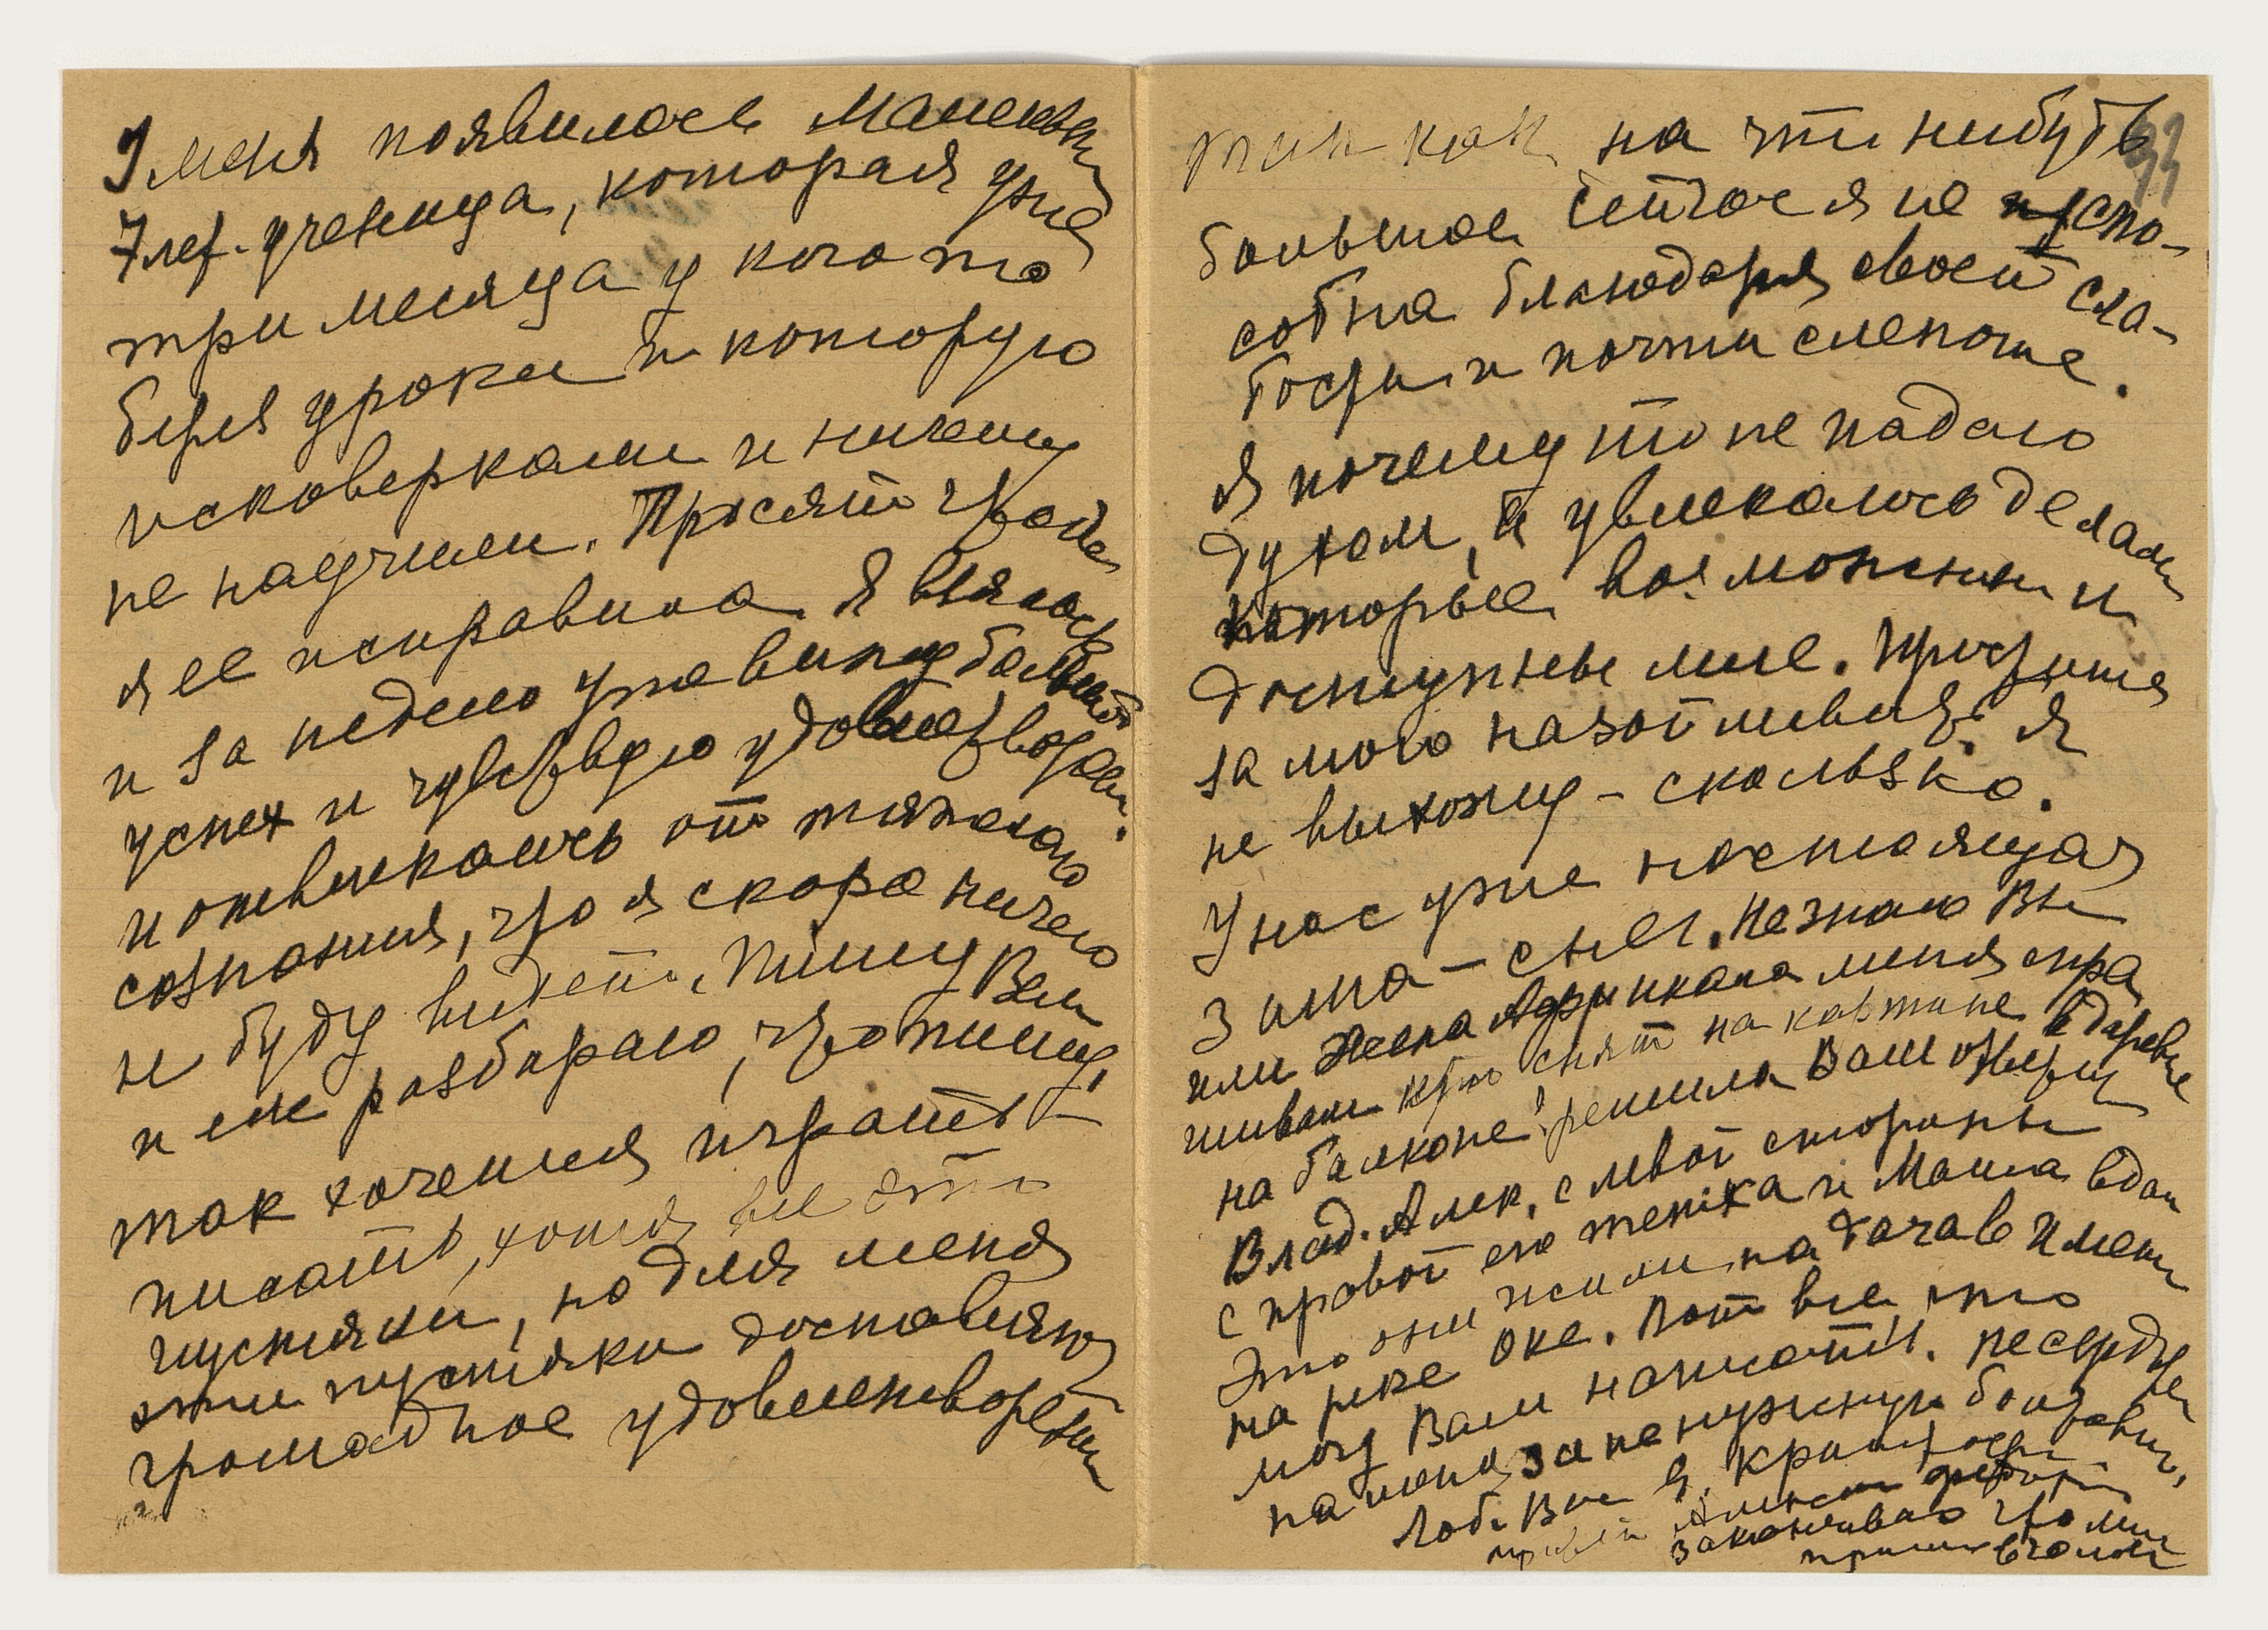 У меня появилась маленькая
7 лет. ученица, которая уже
три месяца у кого то
берет уроки и которую
исковеркали и ничему
не научили. Просят чтобы
я ее исправила. Я взялась
и за неделю уже вижу большой
успех и чувствую удовлетворение
и отвлекаюсь от тяжелого
сознания, что я скоро ничего
не буду видеть. Пишу Вам
и не разбираю, что пишу,
так хочется играть –
писать, хотя все это
пустяки, но для меня
эти пустяки доставляют
громадное удовлетворение
так как на что нибудь
большое сейчас я не спо-
собна благодаря своей сла-
бости и почти слепоте.
Я почему то не падаю
духом, и увлекаюсь делами
которые возможны и
доступные мне. Простите
за мою назойливость. Я
не выхожу – скользко.
У нас уже настоящая
зима – снег. Не знаю Вы
или Жена Африкана меня спра
шивали кто снят на картине в деревне
на балконе? решила Вам ответить
Влад. Алек. с левой стороны
с правой его тетка и Маша вдали
Это они жили на даче в имении
на реке Оке. Вот все что
могу Вам написать. Не сердитесь
на меня за ненужную болтовню,
Люб. Вас Э.
заканчиваю что мне